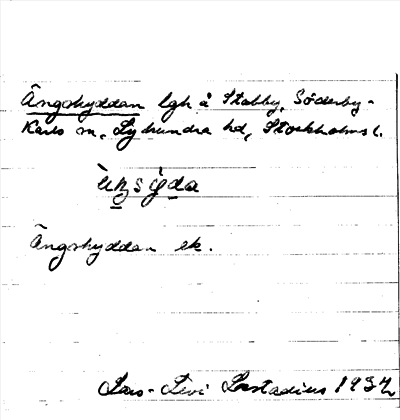 Ängskyddan lgh å Stabby, Söderby-
Karls sn, Lyhundra hd, Stockholms l.
Ängskyddan ek.
Lars-Levi Læstadius 1937